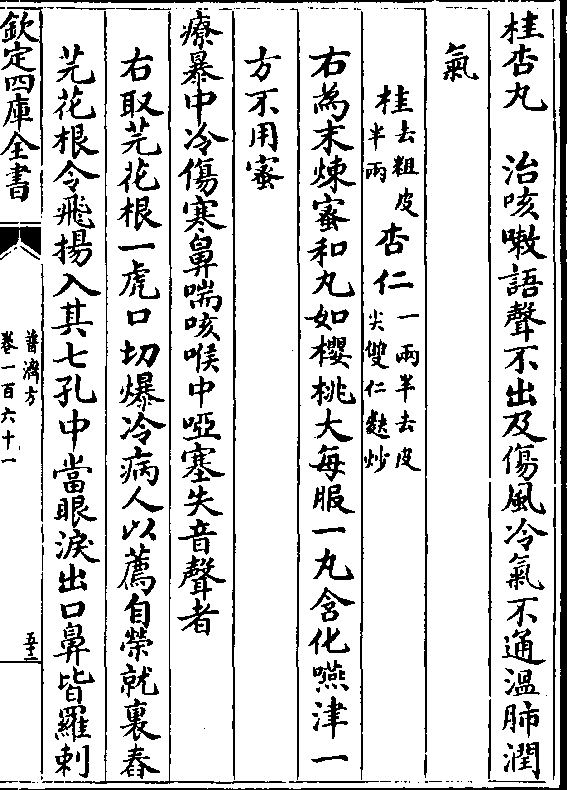 桂杏丸　治咳嗽語聲不出及傷風冷氣不通温肺潤
氣
桂去粗皮半兩　杏仁一兩半去皮尖雙仁麩炒
右為末煉蜜和丸如櫻桃大每服一丸含化嚥津一
方不用蜜
療暴中冷傷寒鼻喘咳喉中啞塞失音聲者
右取芫花根一虎口切爆冷病人以薦自縈就裏舂
芫花根令飛揚入其七孔中當眼淚出口鼻皆羅刺
欽定四庫全書
普濟方
卷一百六十一